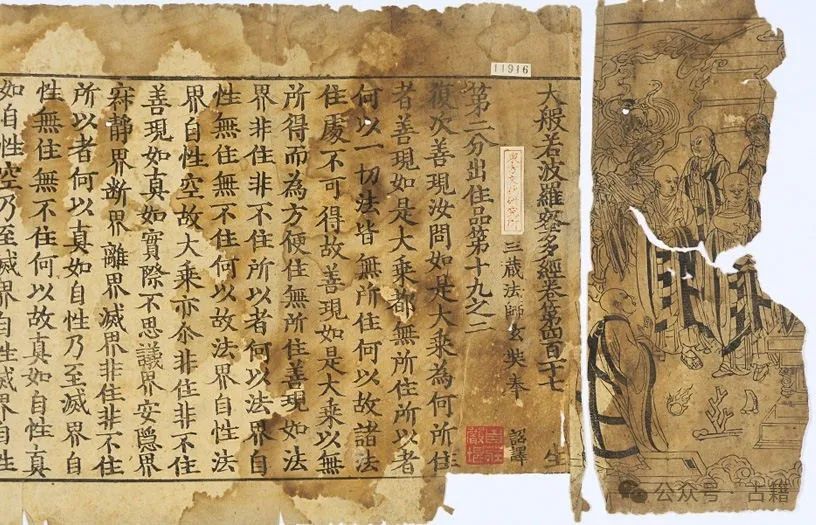 11916
大般若波羅蜜多經卷第四百一十七 生
三藏法師玄奘奉 詔譯
第二分出住品第十九之二
復次善現汝問如是大乘為何所住
者善現如是大乘都無所住所以者
何以一切法皆無所住何以故諸法
住處不可得故善現如是大乘以無
所得而為方便住無所住善現如法
界非住非不住所以者何以法界自
性無住無不住何以故法界自性法
界自性空故大乘亦尒非住非不住
善現如真如實際不思議界安隱界
寂靜界断界離界滅界非住非不住
所以者何以真如自性乃至滅界自
性無住無不住何以故真如自性真
如自性空乃至滅界自性滅界自性
公众号 · 古籍